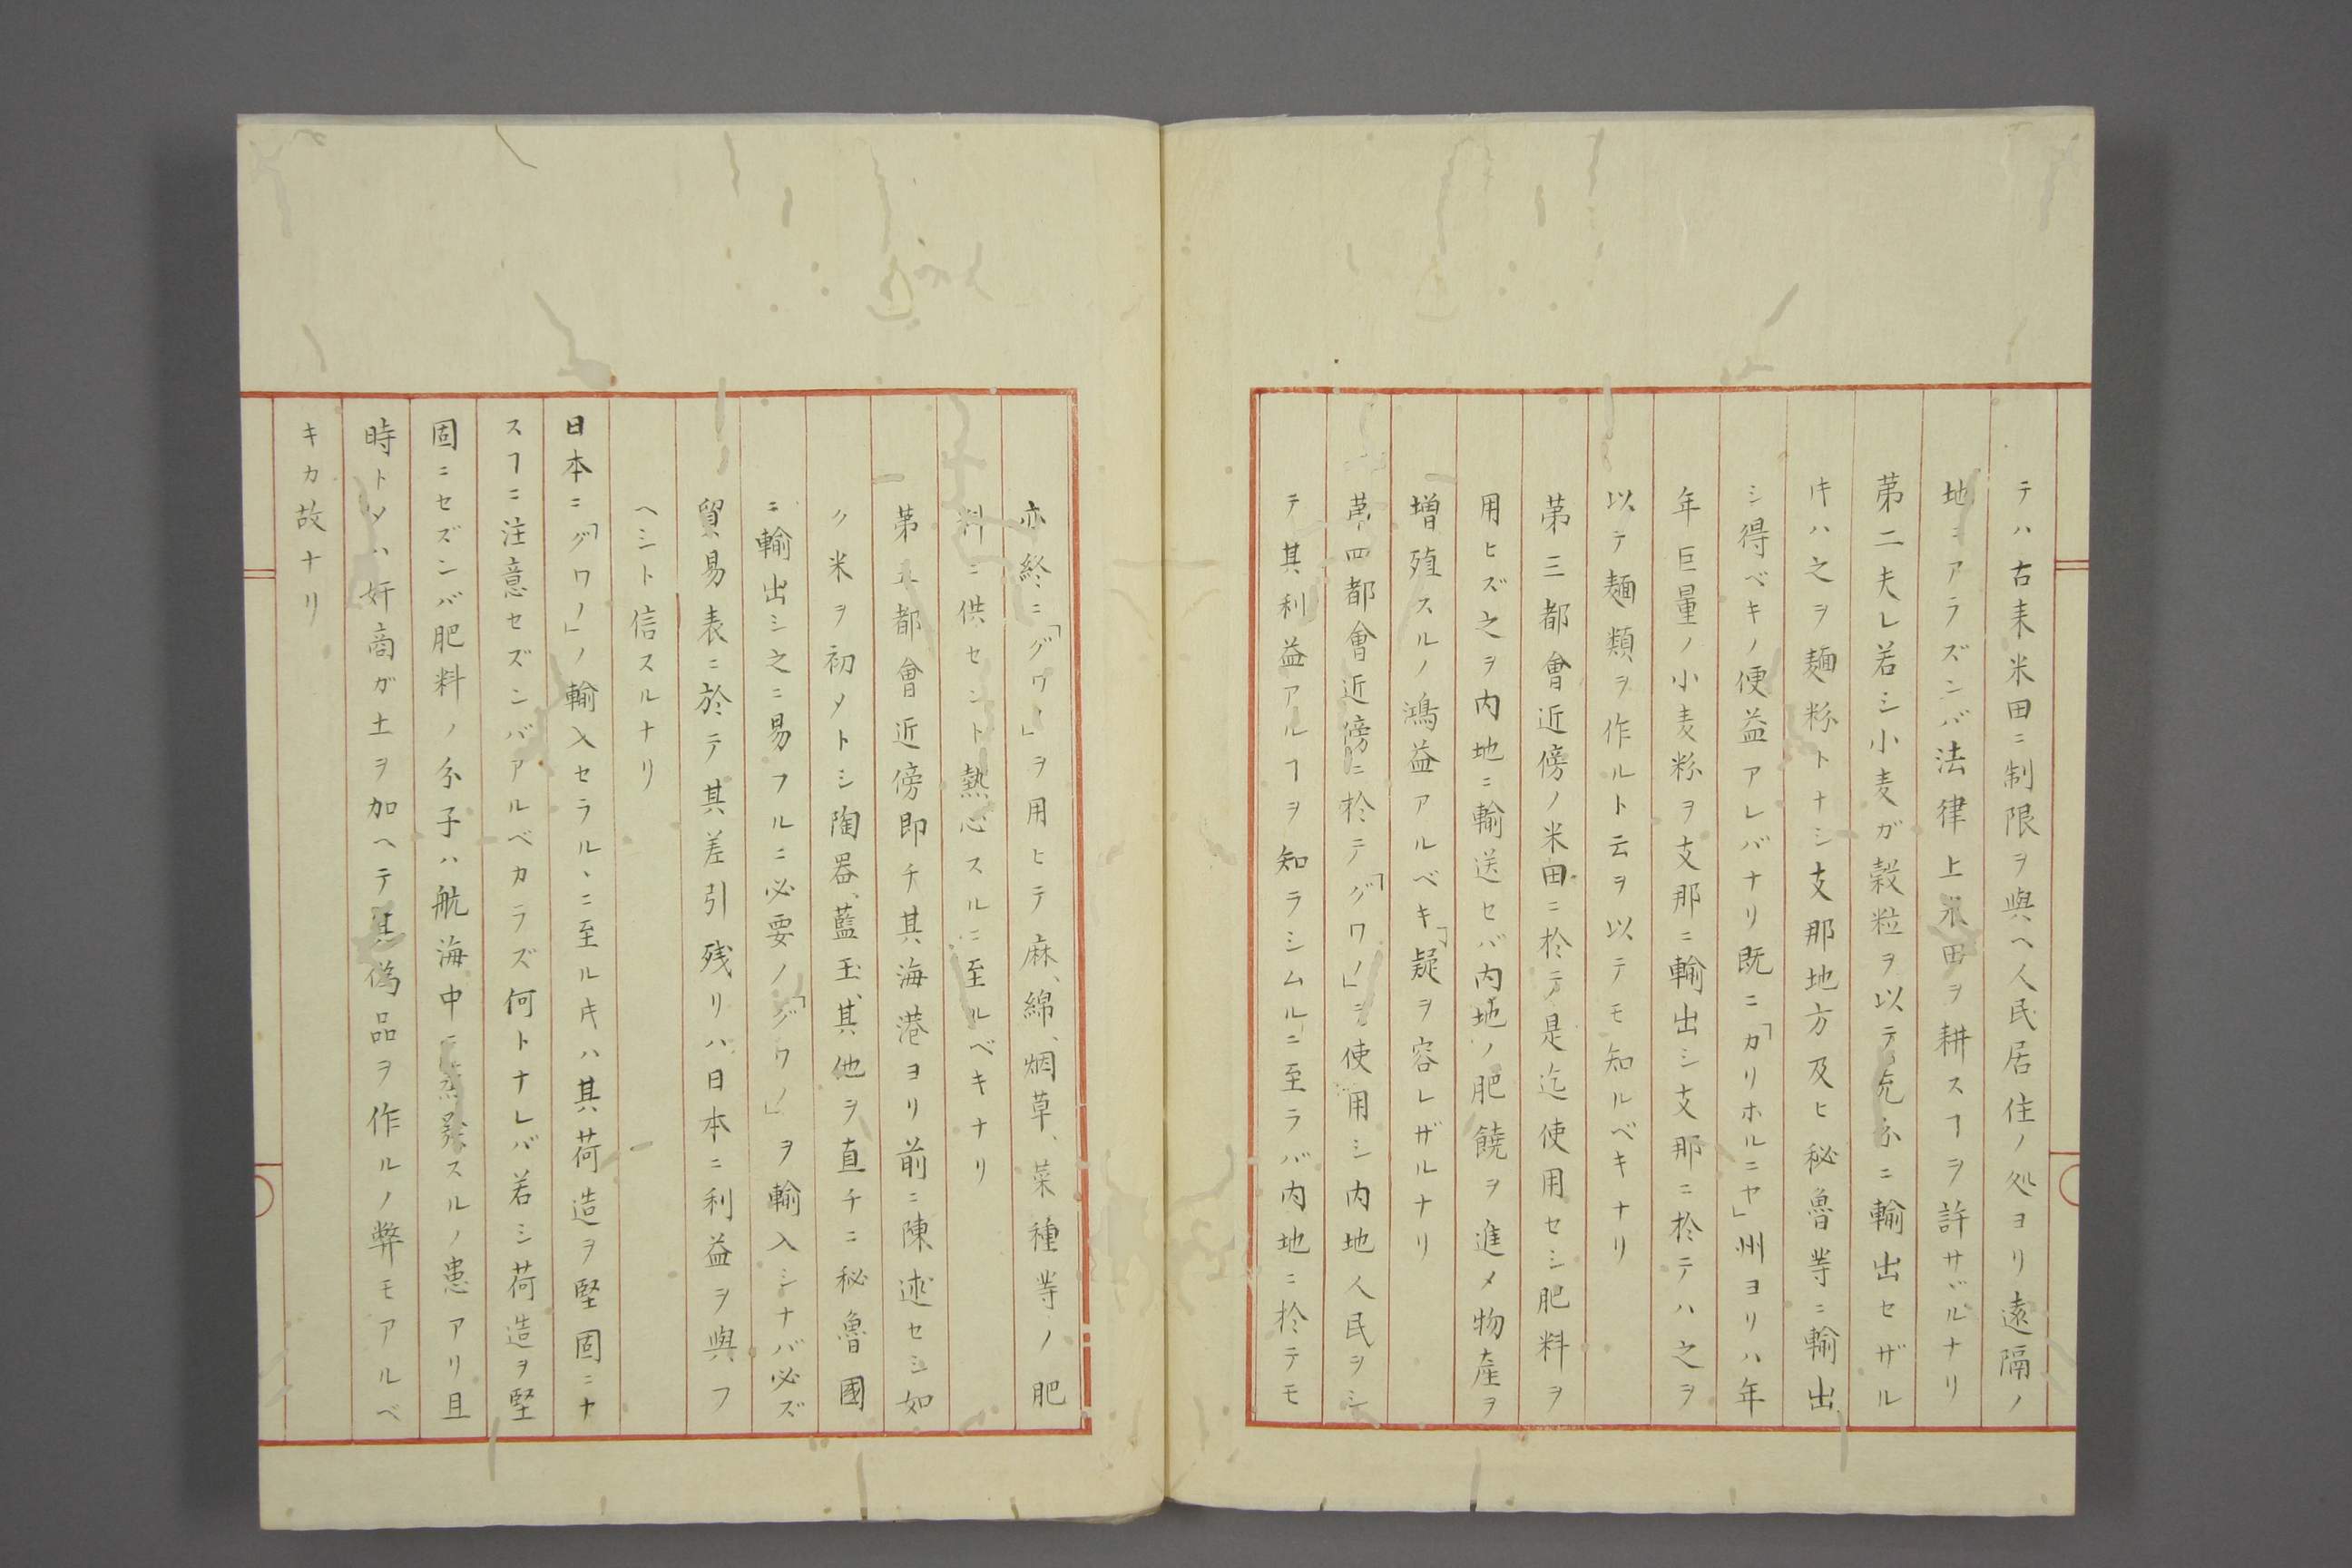 テハ古来米田ニ制限ヲ與ヘ人民居住ノ処ヨリ遠隔ノ
地ニアラズンバ法律上米田ヲ耕スヿヲ許サヾルナリ
第二夫レ若シ小麦ガ穀粒ヲ以テ充分ニ輸出セザル
𪜈ハ之ヲ麺粉トナシ支那地方及ヒ秘魯等ニ輸出
シ得ベキノ便益アレバナリ既ニ「カリホルニヤ」州ヨリハ年
年巨量ノ小麦粉ヲ支那ニ輸出シ支那ニ於テハ之ヲ
以テ麺類ヲ作ルト云ヲ以テモ知ルベキナリ
第三都會近傍ノ米田ニ於テ是迄使用セシ肥料ヲ
用ヒズ之ヲ内地ニ輸送セバ内地ノ肥饒ヲ進メ物産ヲ
増殖スルノ鴻益アルベキ「疑ヲ容レザルナリ
第四都會近傍ニ於テ「グワノ」ヲ使用シ内地人民ヲシ
テ其利益アルヿヲ知ラシムルニ至ラバ内地ニ於テモ
亦終ニ「グワノ」ヲ用ヒテ麻、綿、烟草、菜種等ノ肥
料ニ供セント熱心スルニ至ルベキナリ
第五都會近傍即チ其海港ヨリ前ニ陳述セシ如
ク米ヲ初メトシ陶器、藍玉、其他ヲ直チニ秘魯國
ニ輸出シ之ニ易フルニ必要ノ「グワノ」ヲ輸入シナバ必ズ
貿易表ニ於テ其差引残リハ日本ニ利益ヲ與フ
ヘシト信スルナリ
日本ニ「グワノ」ノ輸入セラルヽニ至ル𪜈ハ其荷造ヲ堅固ニナ
スヿニ注意セズンバアルベカラズ何トナレバ若シ荷造ヲ堅
固ニセズンバ肥料ノ分子ハ航海中ニ蒸発スルノ患アリ且
時トメハ奸商ガ土ヲ加ヘテ其偽品ヲ作ルノ弊モアルベ
キカ故ナリ